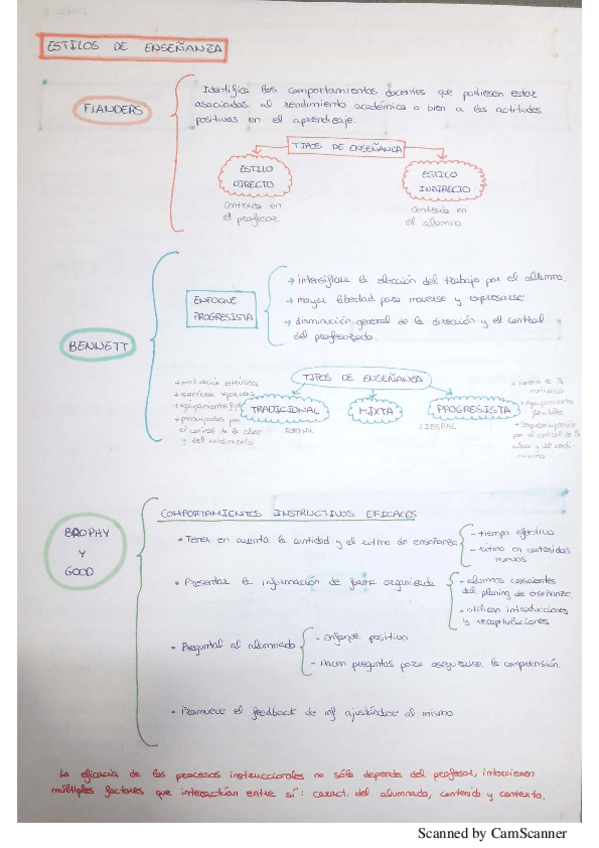 ESTILOS DE ENSEÑANZA
FLANDERS
Identifica los comportamientos docentes que pudiesen estar
asociadas al rendimiento académico o bien a las actitudes
positivas en el aprendizaje.
TIPOS DE ENSEÑANZA
ESTILO
DIRECTO
Centrada en
el profesor
ESTILO
INDIRECTO
Centrada en
el alumno
BENNETT
ENFOQUE
PROGRESISTA
→ intensificar la elección del trabajo por el alumno.
→ mayor libertad para moverse y expresarse.
→ disminución general de la dirección y el control
del profesorado.
TIPOS DE ENSEÑANZA
→ motivación extrínseca
→ agrupamientos fijos
→ preocupados por
el control de la clase
y del rendimiento.
TRADICIONAL
FORMAL
MIXTA
PROGRESISTA
LIBERAL
→ Agrupamientos
→ Despreocupación
por el control de la
clase y del rendi-
miento
BROPHY
Y
GOOD
COMPORTAMIENTOS INSTRUCTIVOS EFICACES
• Tener en cuenta la cantidad y el ritmo de enseñanza
- tiempo efectivo
- ritmo en contenidos
nuevos
• Presentar la información de forma organizada
- alumnos conscientes
del planing de enseñanza
- utilizan introducciones
y recapitulaciones
• Preguntal al alumnado
- Enfoque positivo
- Hacen preguntas para asegurarse la comprensión
• Promueve el feedback de inf. ajustándose al mismo
La eficacia de los procesos instruccionales no sólo depende del profesor, intervienen
múltiples factores que interactúan entre sí: caract. del alumnado, contenido y contexto.
Scanned by CamScanner